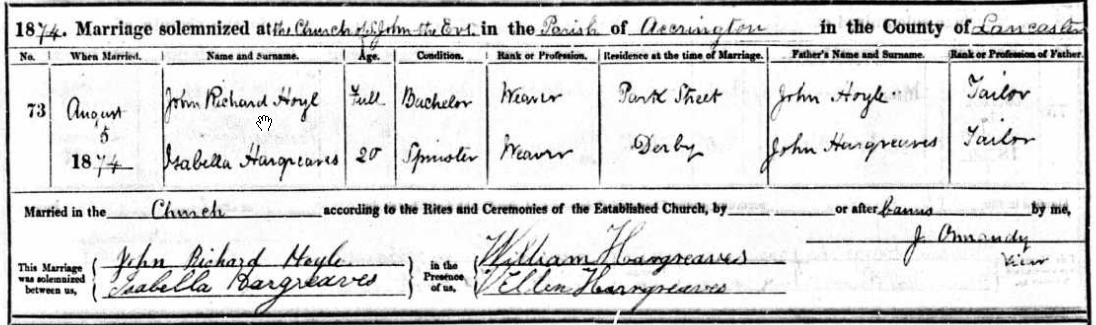 1874. Marriage solemnized at the Church of S. John the Evt. in the Parish of Accrington in the County of Lancaster
No. When Married. Name and Surname. Age. Condition. Rank or Profession. Residence at the time of Marriage. Father's Name and Surname. Rank or Profession of Father.
73 August 5 1874 John Richard Hoyl Full Bachelor Weaver Park Street John Hoyle Tailor
Isabella Hargreaves 20 Spinster Weaver Derby John Hargreaves Tailor
Married in the Church according to the Rites and Ceremonies of the Established Church, by or after Banns by me,
J. Ormandy
Vicar
This Marriage was solemnized between us, John Richard Hoyle in the Presence of us, William Hargreaves
Isabella Hargreaves Ellen Hargreaves